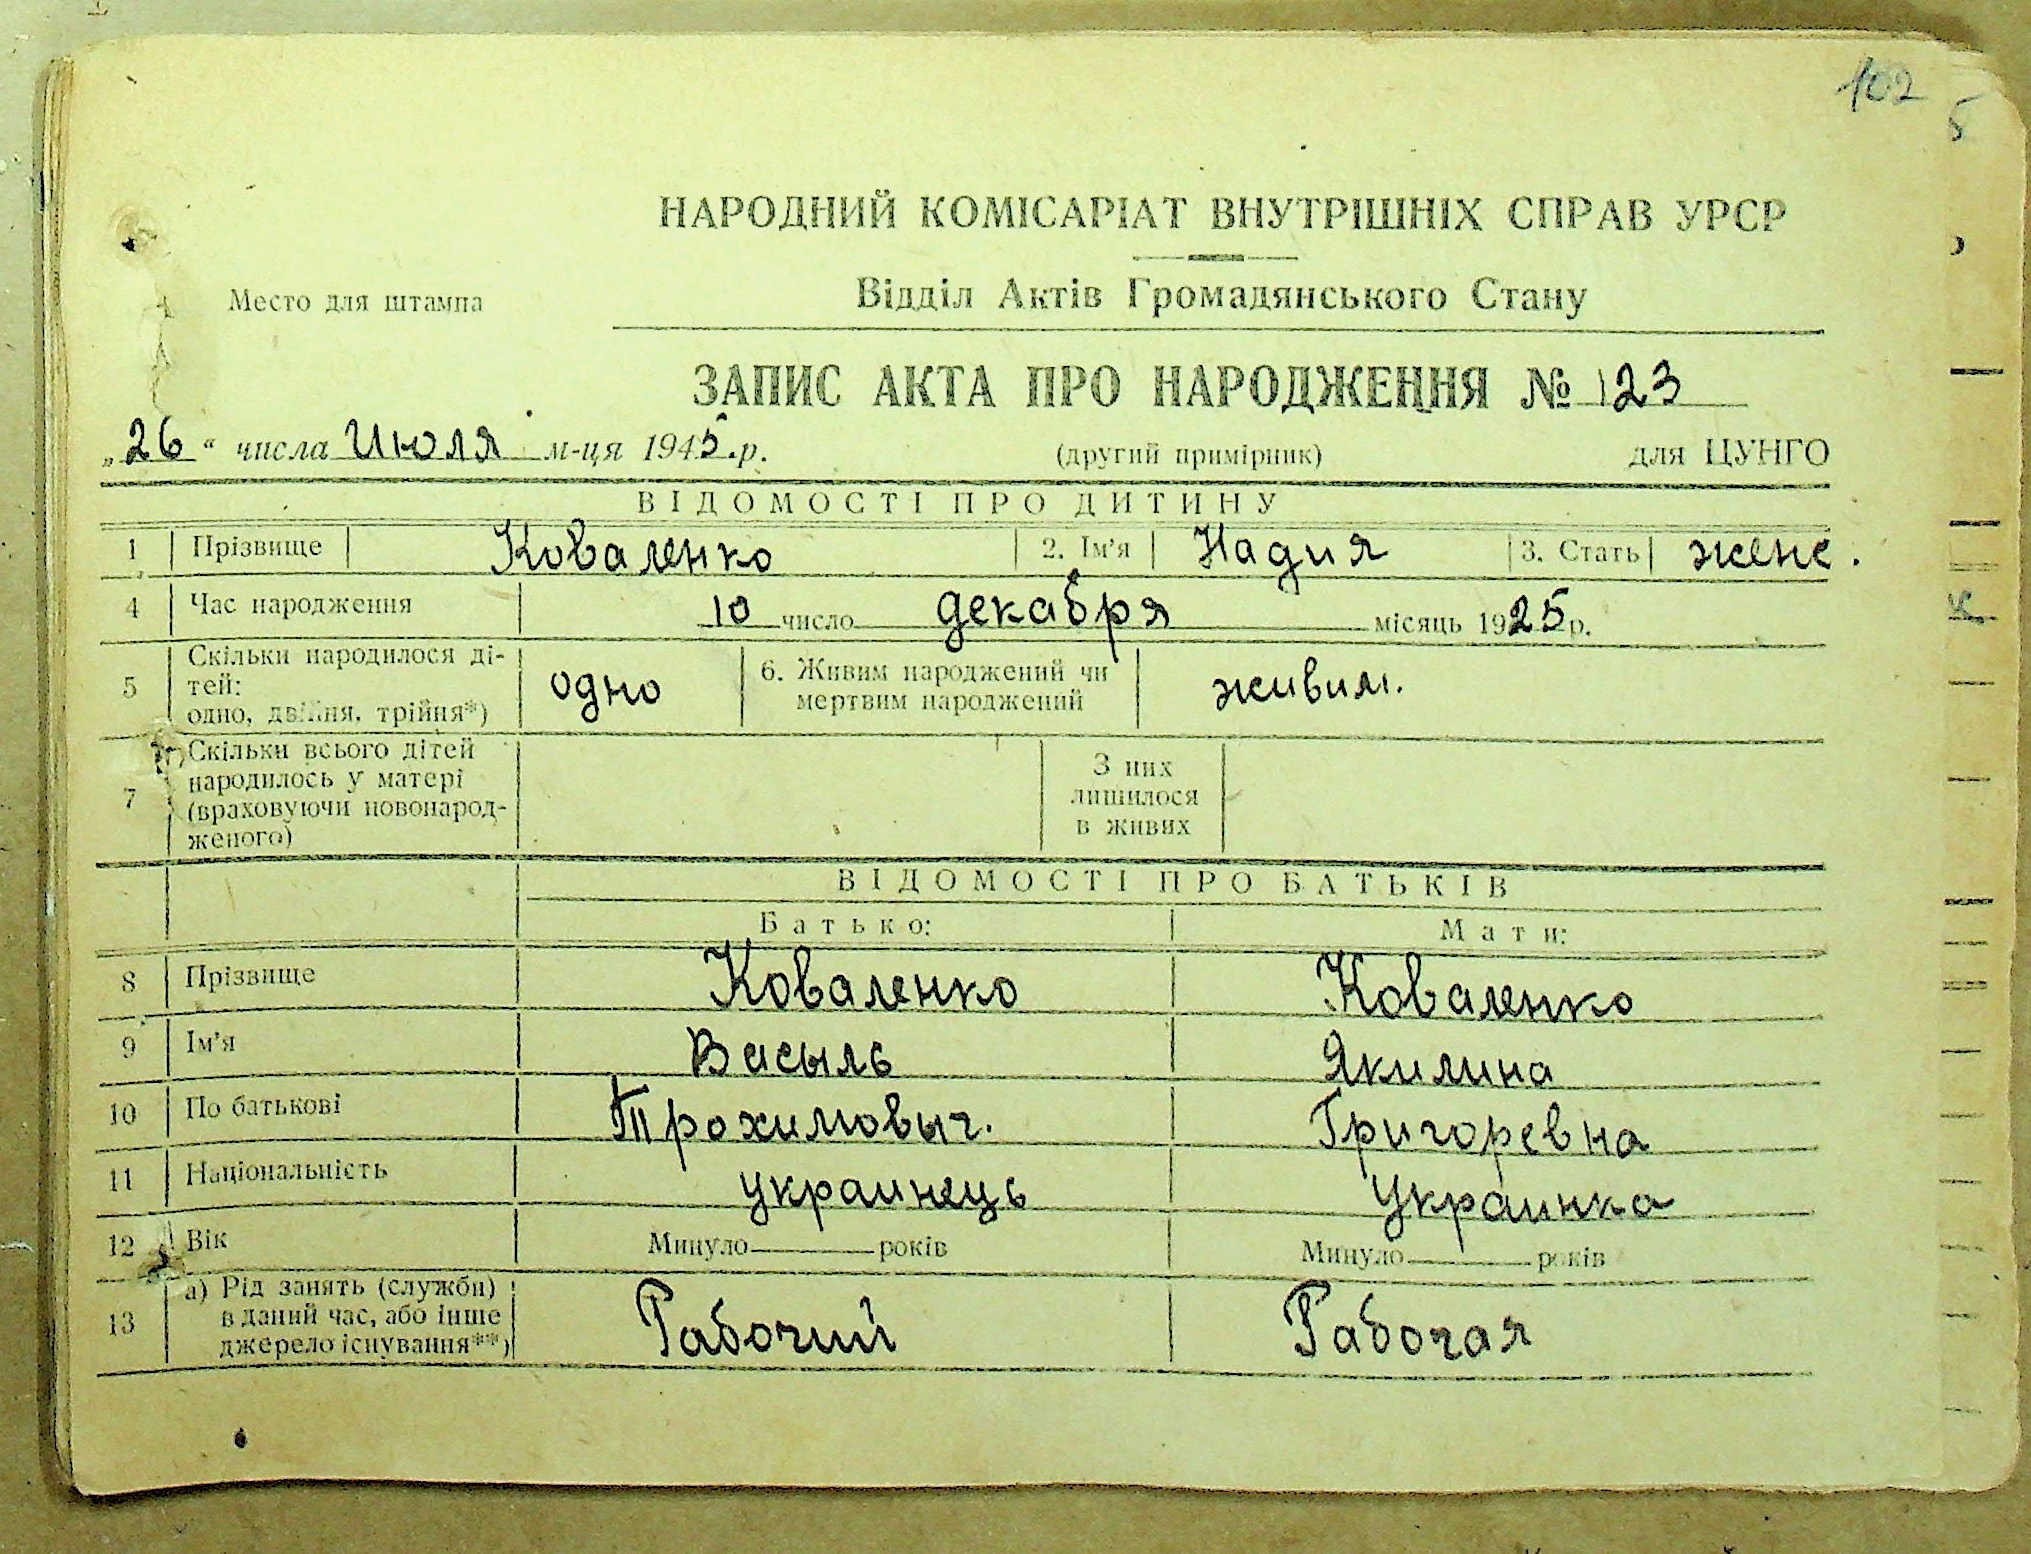 102
НАРОДНИЙ КОМІСАРІАТ ВНУТРІШНІХ СПРАВ УРСР
Место для штампа
Відділ Актів Громадянського Стану
ЗАПИС АКТА ПРО НАРОДЖЕННЯ № 123
„26“ числа Июля м-ця 1945.р. (другий примірник) для ЦУНГО
ВІДОМОСТІ ПРО ДИТИНУ
1 Прізвище Коваленко 2. Ім’я Надия 3. Стать женс.
4 Час народження 10 число декабря місяць 1925 р.
5 Скільки народилося ді-
тей:
одно, двійня, трійня*) одно 6. Живим народжений чи
мертвим народжений живим.
7 Скільки всього дітей
народилось у матері
(враховуючи новонарод-
женого) З них
лишилося
в живих
ВІДОМОСТІ ПРО БАТЬКІВ
Батько: Мати:
8 Прізвище Коваленко Коваленко
9 Ім’я Васыль Якилина
10 По батькові Трохимовыч. Григоревна
11 Національність украинець Украинка
12 Вік Минуло років Минуло років
13 а) Рід занять (служби)
в даний час, або інше
джерело існування**) Рабочий Рабочая